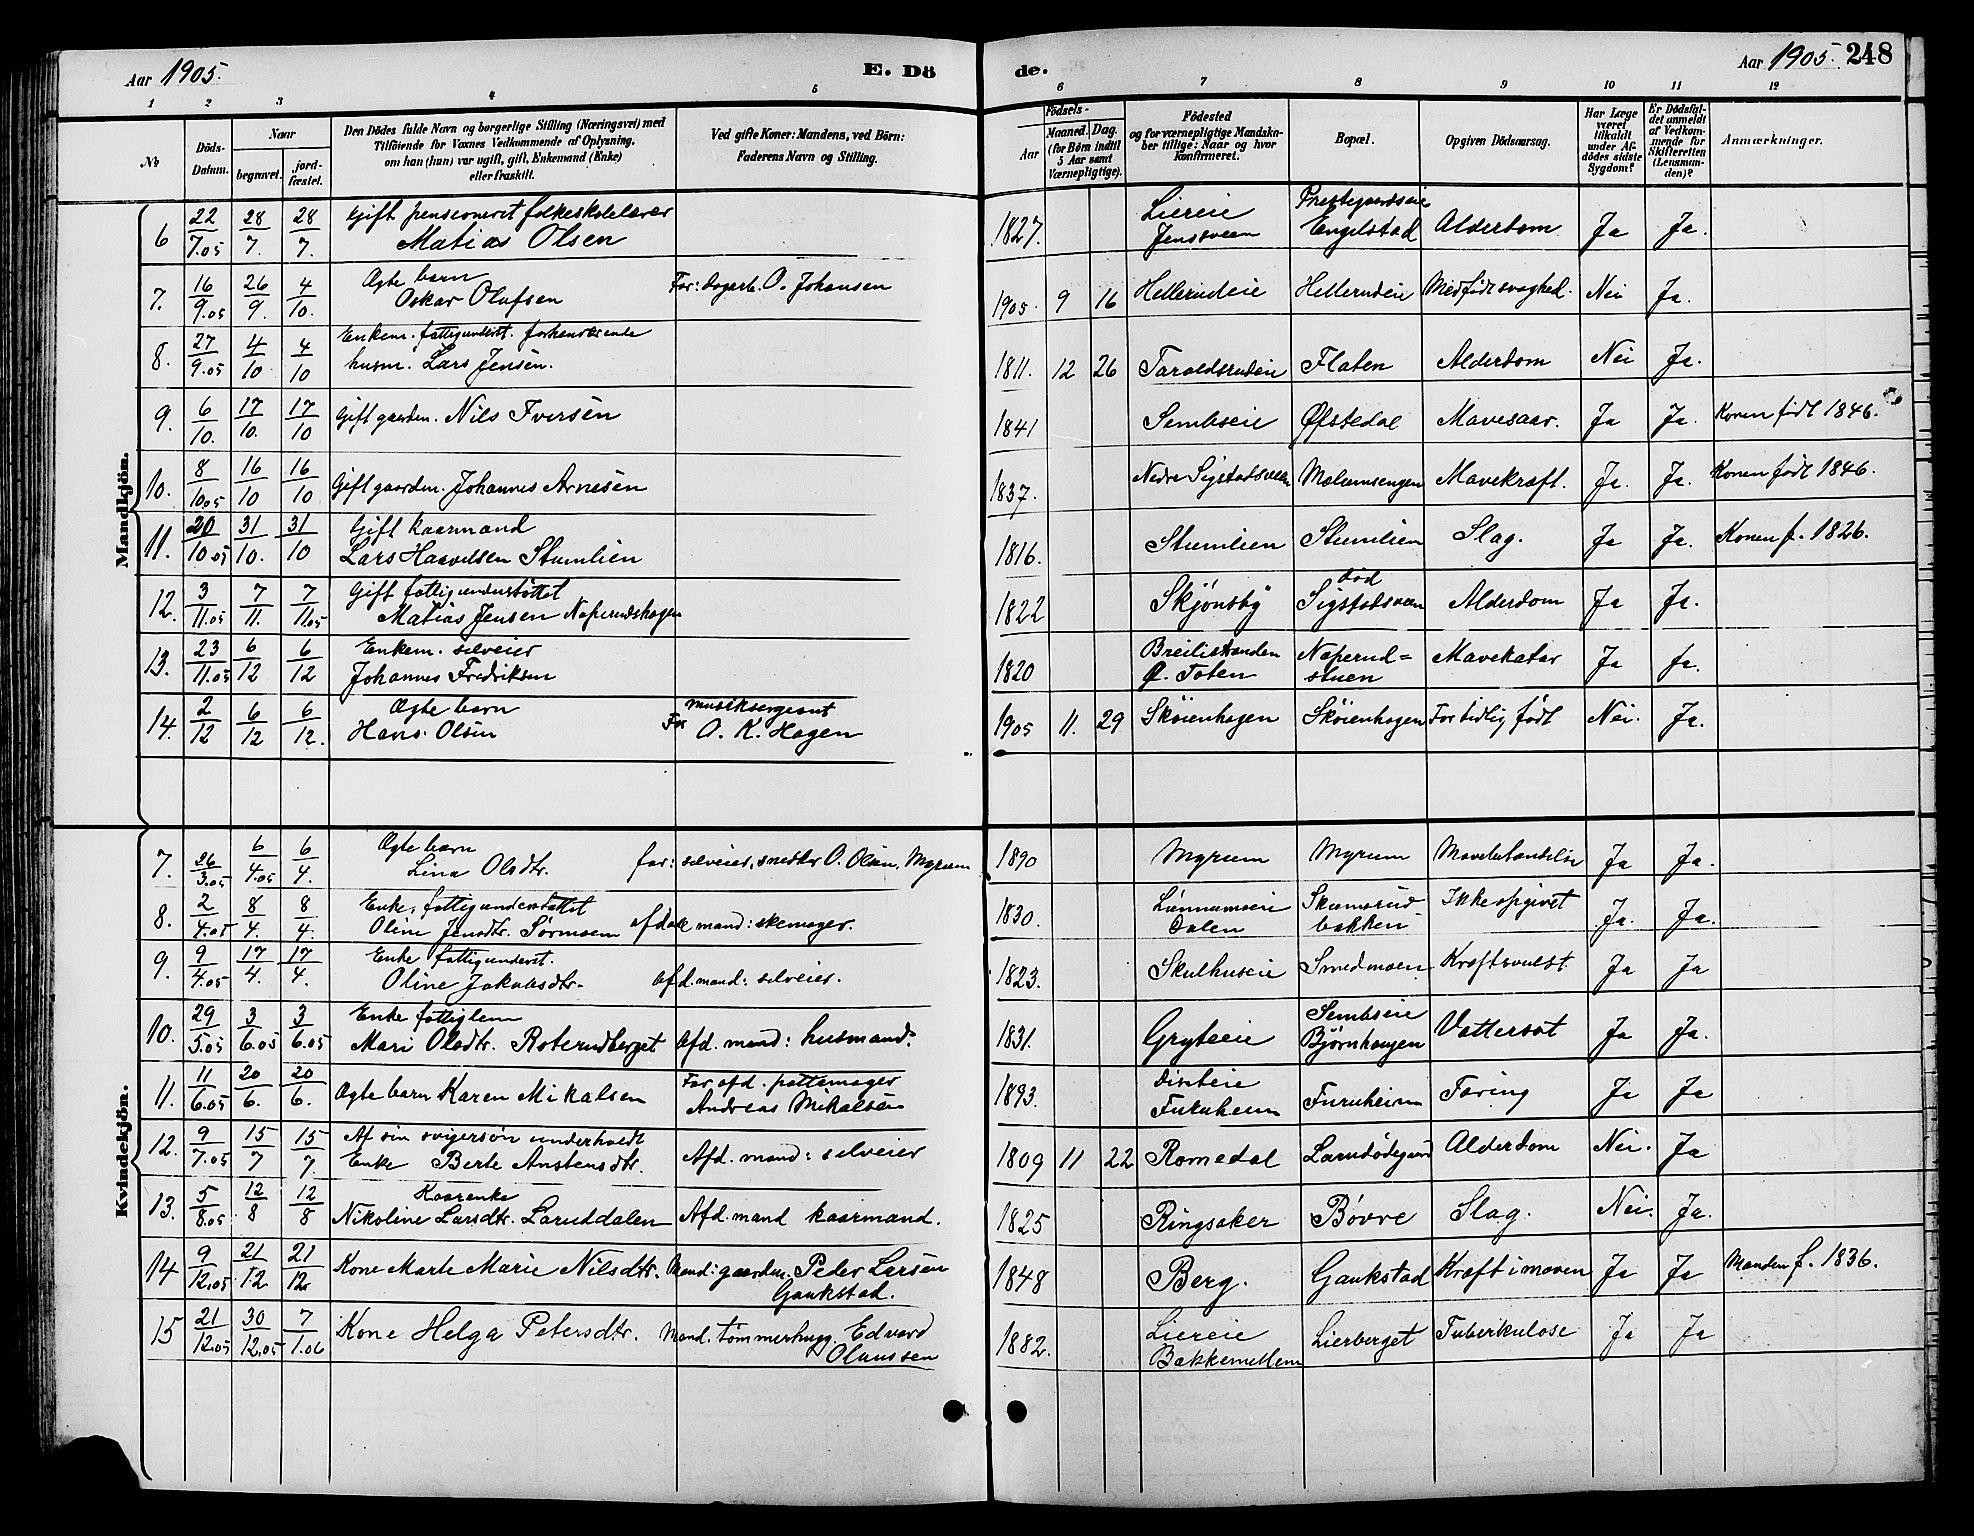 Aar 1905.
E. Dö
de.
Aar 1905. 248
1 2 3 4 5 6 7 8 9 10 11 12
No
Döds-Datum.
Naar
begravet.
jordfæstet.
Den Dödes fulde Navn og borgerlige Stilling (Næringsvei) med Tilföiende for Voxnes Vedkommende af Oplysning, om han (hun) var ugift, gift, Enkemand (Enke) eller fraskilt.
Ved gifte Koner: Mandens, ved Börn: Faderens Navn og Stilling.
Födsels-
Aar
Maaned. Dag.
(for Börn indtil 5 Aar samt Værnepligtige).
Födested og for værnepligtige Mandskaber tillige: Naar og hvor konfirmeret.
Bopæl.
Opgiven Dödsaarsag.
Har Læge været tilkaldt under Afdödes sidste Sygdom?
Er Dödsfaldet anmeldt af Vedkommende for Skifteretten (Lensmanden)?
Anmærkninger.
Mandkjön.
6 22/7.05 28/7. 28/7. Gift pensioneret folkeskolelærer Matias Olsen 1827. Liereie Jenssveen Prestegaardseie Engelstad Alderdom Ja Ja.
7. 16/9.05 26/9. 4/10. Ægte barn Oskar Olufsen Far: dagarb. O. Johansen 1905. 9 16 Hellerudeie Hellerudeie Medfødt svaghed. Nei Ja.
8. 27/9.05 4/10 4/10 Enkem. fattigunderst. forhenværende husm. Lars Jensen. 1811. 12 26 Taroldsrudeie Flaten Alderdom Nei Ja.
9. 6/10. 17/10. 17/10 Gift gaardm. Nils Iversen 1841 Sembseie Øfstedal Mavesaar. Ja Ja. Konen født 1846.
10. 8/10.05 16/10 16/10 Gift gaardm. Johannes Arnesen 1837. Nedre Sigstadsveen Mælumsengen Mavekræft. Ja. Ja. Konen født 1846.
11. 20/10.05 31/10. 31/10 Gift kaarmand Lars Haavelsen Stumlien 1816. Stumlien Stumlien Slag. Ja Ja. Konen f. 1826.
12. 3/11.05 7/11. 7/11.05 Gift fattigunderstøttet Matias Jensen Naperudshagen 1822 Skjønsby død Sigstadsveen Alderdom Ja Ja.
13. 23/11.05 6/12 6/12 Enkem. selveier Johannes Fredriksen 1820 Breilistranden Ø. Toten Naperud=stuen Mavekatar Ja Ja.
14. 2/12 6/12 6/12. Ægte barn Hans Olsen Far musiksergeant O. K. Hagen 1905 11. 29 Skøienhagen Skøienhagen For tidlig født Nei. Ja.
Kvindekjön.
7. 26/3.05 6/4.05 6/4. Ægte barn Lina Olsdtr. far: selveier, snedker O. Olsen, Myrum 1890 Myrum Myrum Ja Ja.
8. 2/4.05 8/4. 8/4. Enke, fattigunderstøttet Oline Jensdtr. afdøde mand: skomager. 1830. Lønnumseie Dalen Skumsrudbakken Ikke opgivet Ja. Ja.
9. 9/4.05 17/4. 17/4. Enke fattigunderst. Oline Jakobsdtr. Afd. mand: selveier. 1823. Skulhuseie Smedmoen Kræftsvulst. Ja Ja
10. 29/5.05 3/6.05 3/6.05 Enke fattiglem Mari Olsdtr. Roterudberget Afd. mand: husmand. 1831. Gryteeie Sembseie Bjørnhaugen Vattersot Ja Ja.
11. 11/6.05 20/6. 20/6. Ægte barn Karen Mikalsen Far afd. pottemager Andreas Mikalsen 1893. Furuheim Furuheim Tæring Ja Ja
12. 9/7.05 15/7 15/7. Af sin svigersøn underholdt Enke Berte Anstensdtr. Afd. mand: selveier 1809 11 22 Romedal Alderdom Nei. Ja
13. 5/8.05 12/8 12/8 Kaarenke Nikoline Larsdtr. Laruddalen Afd. mand kaarmand. 1825 Ringsaker Bøvre Slag. Nei. Ja.
14 9/12.05 21/12 21/12 Kone Marte Marie Nilsdtr. Mand: gaardm. Peder Larsen Gaukstad. 1848 Berg. Gaukstad Kræft i maven Ja Ja Manden f. 1836.
15 21/12.05 30/12.05 7/1.06 Kone Helga Petersdtr. Mand. tømmerhugg. Edvard Olaussen 1882. Liereie Bakkemellem Lierberget Tuberkulose Ja Ja